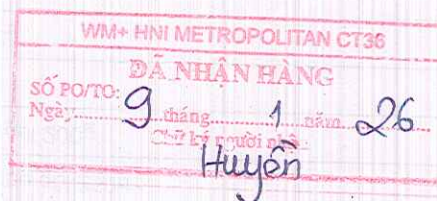 WM+ HNI METROPOLITAN CT36
ĐÃ NHẬN HÀNG
SỐ PO/TO:
Ngày.......9.......tháng.......1.......năm...26...
Chữ ký người nhận
Huyền